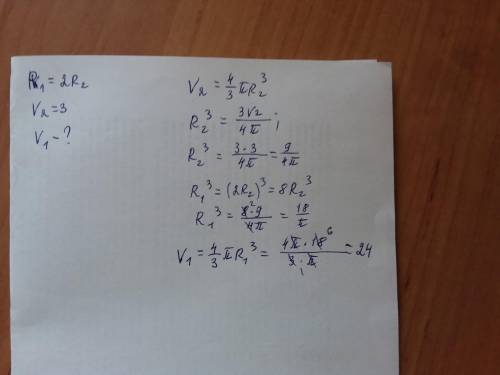 R₁ = 2R₂
V₂ = 3
V₁ - ?
V₂ = 4/3 πR₂³
R₂³ = 3V₂/4π ;
R₂³ = 3·3/4π = 9/4π
R₁³ = (2R₂)³ = 8R₂³
R₁³ = 8²·9/4π = 18/π
V₁ = 4/3 πR₁³ = 4π·18⁶/3₁·π = 24